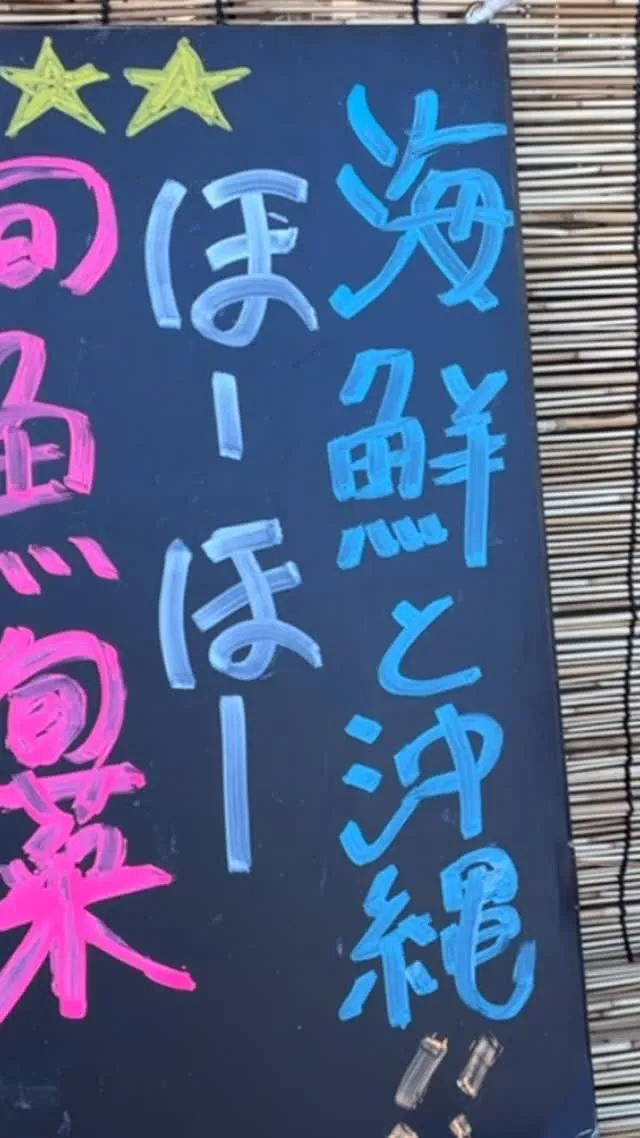 海鮮と沖縄
ほーほー
旬魚旬菜